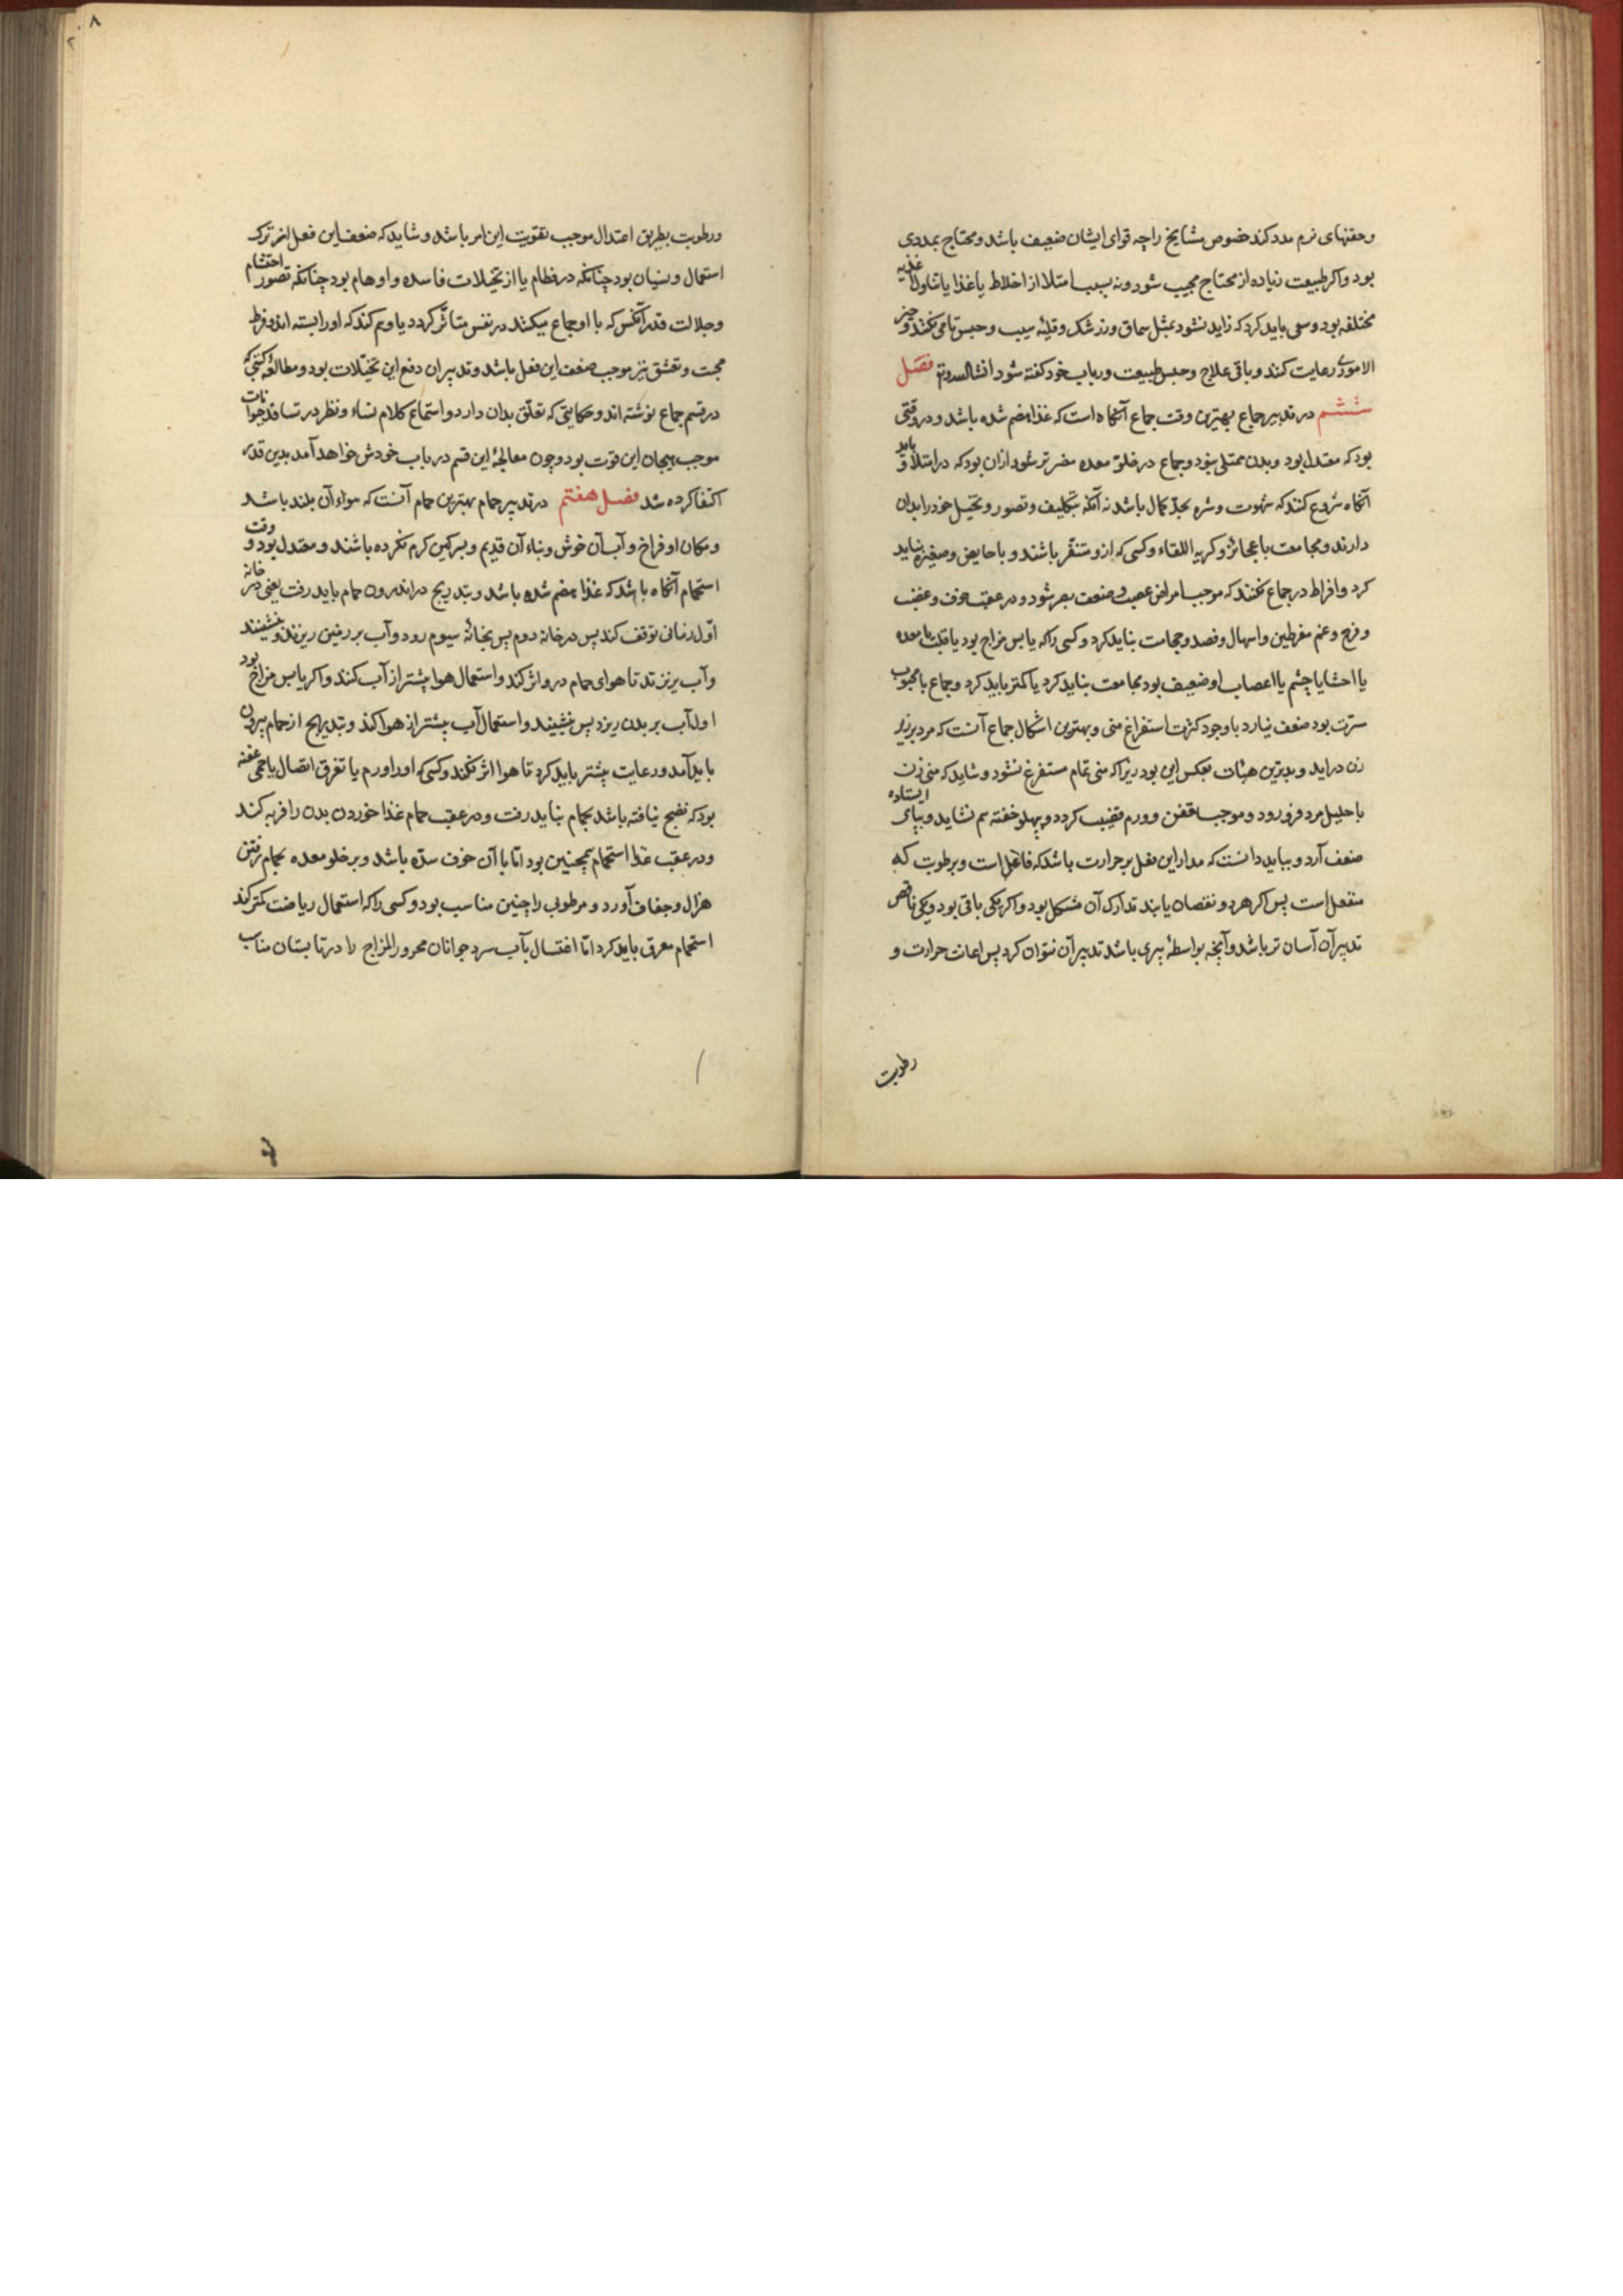 وحقنهای نرم مدد کند خصوص مشایخ را چه قوای ایشان ضعیف باشد و محتاج بمددی
بود واکر طبیعت زیاده از محتاج مجیب شود ونه بسبب امتلا از اخلاط یا غذا یا تناول اغذیه
مختلفه بود وسعی باید کرد که زاید نشود بمثل سماق وزرشک وقلیهٔ سیب وحبس تمامی نکنند وخیر
الامور رعایت کنند وباقی علاج وحبس طبیعت در باب خود کفته شود انشاالله وتع فصل
ششم در تدبیر جماع بهترین وقت جماع آنکاه است که غذا هضم شده باشد ودر وقتی
بود که معتدل بود وبدن ممتلی نبود وجماع در خلو معده مضرتر شود ازان بود که در امتلا و باید
آنکاه شروع کنند که شهوت وشره بحد کمال باشد نه آنکه بتکلیف وتصور وتخیل خود را بدان
دارند ومجامعت با عجائز وکریه اللقاء وکسی که ازو متنفر باشند وبا حایض وصغیره نباید
کرد وافراط در جماع نکنند که موجب امراض عصب وضعف بصر شود ودر عقب خوف وغضب
وفرح وغم مفرطین واسهال وفصد وحجامت نباید کرد وکسی را که یابس مزاج بود یا قلب یا معده
یا احشا یا چشم یا اعصاب او ضعیف بود مجامعت نباید کرد یا کمتر باید کرد وجماع با محبوب
سترت بود ضعف نیارد باوجود کثرت استفراغ منی وبهترین اشکال جماع آنست که مرد بر زبر
زن دراید وبدترین هیئات بعکس این بود زیرا که منی تمام مستفرغ نشود وشاید که منی زن
باحلیل مرد فرو رود وموجب عفن وورم قضیب کردد وپهلو خفته هم نشاید وبپای ایستاده
ضعف آرد وبباید دانست که مدار این فعل بر حرارت باشد که فاعل است وبرطوبت که
منفعل است پس اکر هر دو نقصان یابند تدارک آن مشکل بود واکر یکی باقی بود ویکی ناقص
تدبیر آن آسان تر باشد وآنچه بواسطهٔ پیری باشد تدبیر آن نتوان کرد پس اعانت حرارت و
رطوبت
ورطوبت بطریق اعتدال موجب تقویت این امر باشد وشاید که ضعف این فعل از ترک
استعمال ونسیان بود چنانکه در فطام یا از تخیلات فاسده واوهام بود چنانکه تصور احتشام
وجلالت قدر آنکس که با او جماع میکنند در نفس متأثر کردد یا وهم کند که او را بسته اند وفرط
محبت وتعشق نیز موجب ضعف این فعل باشد وتدبیر ان دفع این تخیلات بود ومطالعهٔ کتبی که
در قسم جماع نوشته اند وحکایتی که تعلق بدان دارد واستماع کلام نساء ونظر در تسافد حیوانات
موجب هیجان این قوت بود وچون معالجهٔ این قسم در باب خودش خواهد آمد بدین قدر
اکتفا کرده شد فصل هفتم در تدبیر حمام بهترین حمام آنست که هواء آن بلند باشد
ومکان او فراخ وآب آن خوش وبناء آن قدیم وبسرکین کرم نکرده باشند ومعتدل بود و وقت
استحمام آنکاه باشد که غذا هضم شده باشد وبتدریج در اندرون حمام باید رفت یعنی در خانه
اول زمانی توقف کند پس در خانه دوم پس بخانهٔ سیوم رود وآب بر زمین ریزند وبنشینند
وآب بریزند تا هوای حمام درو اثر کند واستعمال هوا پیشتر از آب کنند واکر یابس مزاج بود
اول آب بر بدن ریزد پس نشیند واستعمال آب بیشتر از هوا کند وبتدریج از حمام بیرون
باید آمد ورعایت بیشتر باید کرد تا هوا اثر نکند وکسی که اورا ورم یا تفرق اتصال یا حمی عفنه
بود که نضج نیافته باشد بحمام نباید رفت ودر عقب حمام غذا خوردن بدن را فربه کند
ودر عقب غذا استحمام همچنین بود اما با آن خوف سده باشد وبر خلو معده بحمام رفتن
هزال وجفاف آورد ومرطوبی را چنین مناسب بود وکسی را که استعمال ریاضت کمتر کند
استحمام معرق باید کرد اما اغتسال بآب سرد جوانان محرور المزاج را در تابستان مناسب